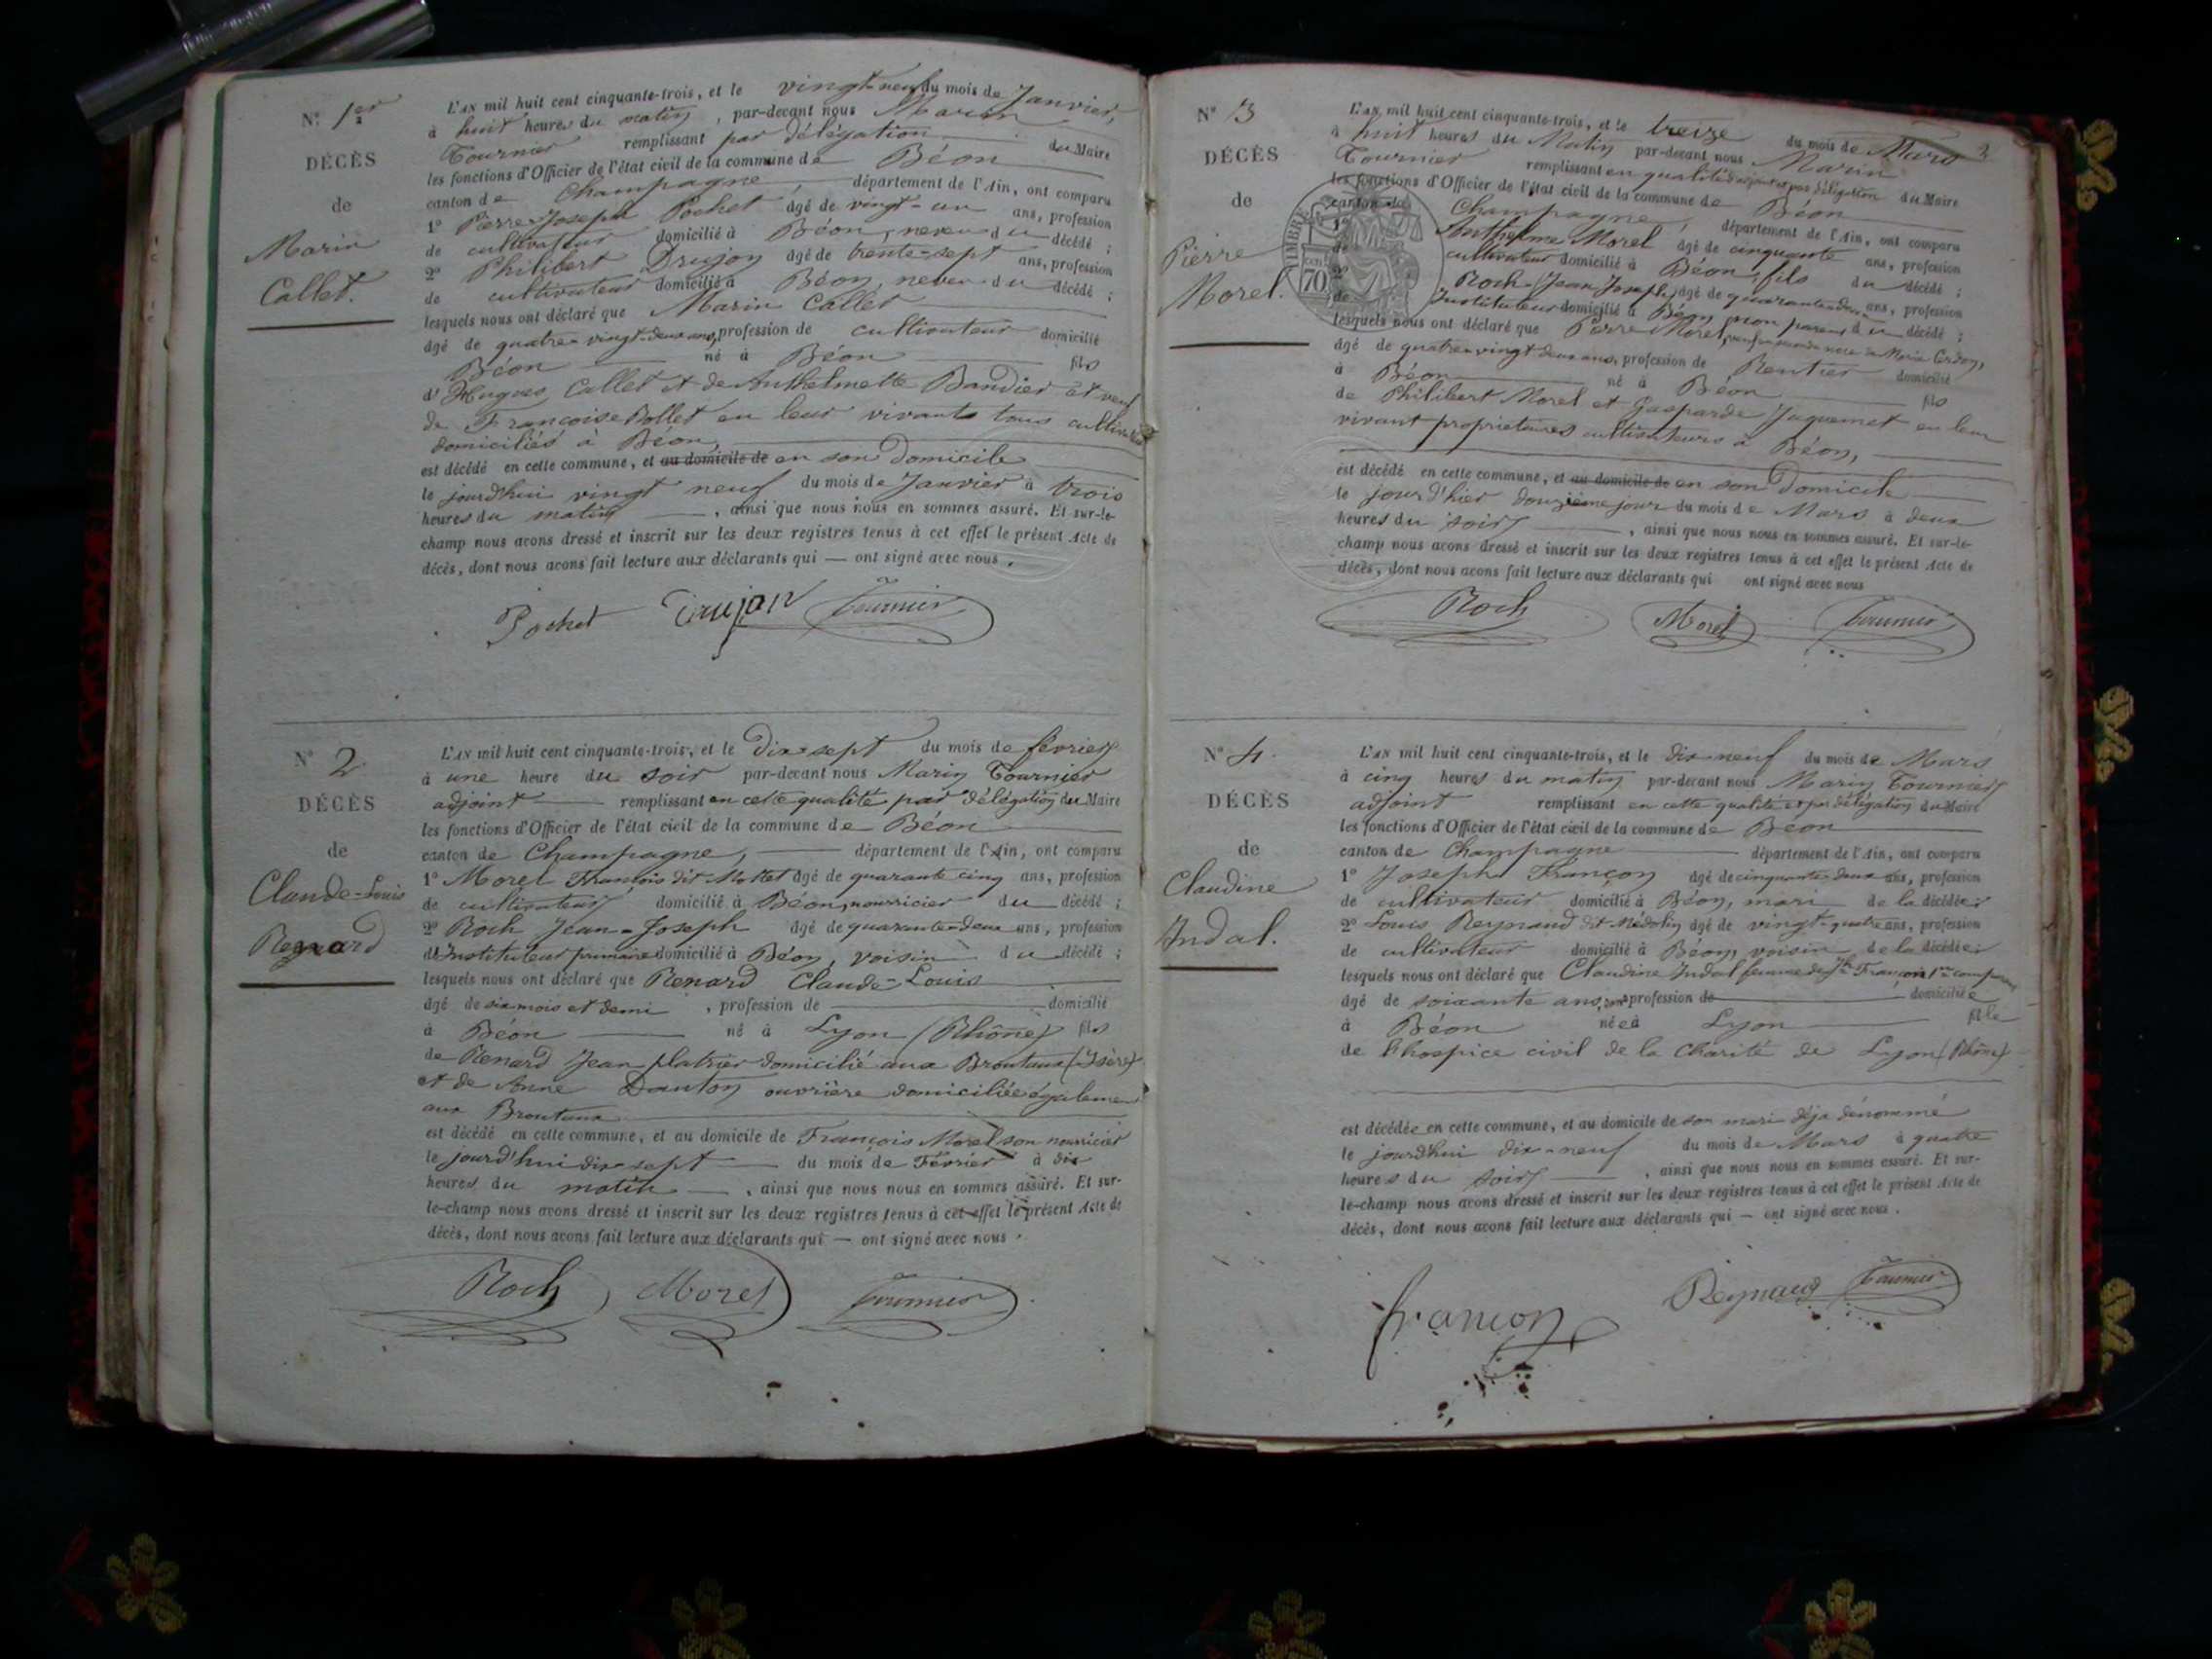 N° 1er
DÉCÈS
de
Marin
Callet.
L'AN mil huit cent cinquante-trois, et le vingt-neuf du mois de Janvier,
à huit heures du matin, par-devant nous Marin
Tournier remplissant par délégation du Maire
les fonctions d'Officier de l'état civil de la commune de Béon
canton de Champagne, département de l'Ain, ont comparu
1° Pierre-Joseph Pochet âgé de vingt-un ans, profession
de cultivateur domicilié à Béon, neveu du décédé ;
2° Philibert Drujon âgé de trente-sept ans, profession
de cultivateur domicilié à Béon, neveu du décédé ;
lesquels nous ont déclaré que Marin Callet
âgé de quatre-vingt-deux ans, profession de cultivateur domicilié
Béon né à Béon fils
d'Hugues Callet et de Anthelmette Bandier et veuf
de Françoise Bollet en leur vivants tous cultivateurs
domiciliés à Béon,
est décédé en cette commune, et au domicile de en son domicile
le jourd'hui vingt neuf du mois de Janvier à trois
heures du matin, ainsi que nous nous en sommes assuré. Et sur-le-
champ nous avons dressé et inscrit sur les deux registres tenus à cet effet le présent Acte de
décès, dont nous avons fait lecture aux déclarants qui — ont signé avec nous.
Pochet Drujon Tournier
N° 2
DÉCÈS
de
Claude-Louis
Renard
L'AN mil huit cent cinquante-trois, et le dix-sept du mois de février
à une heure du soir par-devant nous Marin Tournier
adjoint remplissant en cette qualité par délégation du Maire
les fonctions d'Officier de l'état civil de la commune de Béon
canton de Champagne, département de l'Ain, ont comparu
1° Morel François dit Mottet âgé de quarante cinq ans, profession
de cultivateur domicilié à Béon, nourricier du décédé ;
2° Roch Jean-Joseph âgé de quarante-deux ans, profession
d'Instituteur primaire domicilié à Béon, voisin du décédé ;
lesquels nous ont déclaré que Renard Claude-Louis
âgé de six mois et demi, profession de domicilié
à Béon né à Lyon (Rhône) fils
de Renard Jean platrier domicilié aux Broutaux (Isère)
et de Anne Danton ouvrière domiciliée également
aux Broutaux
est décédé en cette commune, et au domicile de François Morel son nourricier
le jourd'hui dix-sept du mois de Février à dix
heures du matin, ainsi que nous nous en sommes assuré. Et sur-
le-champ nous avons dressé et inscrit sur les deux registres tenus à cet effet le présent Acte de
décès, dont nous avons fait lecture aux déclarants qui — ont signé avec nous.
Roch Morel Tournier
3
N° 3
DÉCÈS
de
Pierre
Morel.
TIMBRE
70
L'AN mil huit cent cinquante-trois, et le treize du mois de Mars
à huit heures du Matin par-devant nous Marin
Tournier remplissant en qualité d'adjoint et par délégation du Maire
les fonctions d'Officier de l'état civil de la commune de Béon
canton de Champagne, département de l'Ain, ont comparu
1° Anthelme Morel âgé de cinquante ans, profession
de cultivateur domicilié à Béon, fils du décédé ;
2° Roch Jean Joseph, âgé de quarante-deux ans, profession
de Instituteur domicilié à Béon non parent du décédé ;
lesquels nous ont déclaré que Pierre Morel, de Marie Cerdon,
âgé de quatre-vingt deux ans, profession de Rentier domicilié
à Béon né à Béon fils
de Philibert Morel et Gasparde Jaquemet en leur
vivant propriétaires cultivateurs à Béon,
est décédé en cette commune, et au domicile de en son domicile
le jour d'hier douzième jour du mois de Mars à deux
heures du soir, ainsi que nous nous en sommes assuré. Et sur-le-
champ nous avons dressé et inscrit sur les deux registres tenus à cet effet le présent Acte de
décès, dont nous avons fait lecture aux déclarants qui ont signé avec nous
Roch Morel Tournier
N° 4.
DÉCÈS
de
Claudine
Indal.
L'AN mil huit cent cinquante-trois, et le dix-neuf du mois de Mars
à cinq heures du matin par-devant nous Marin Tournier
adjoint remplissant en cette qualité et par délégation du Maire
les fonctions d'Officier de l'état civil de la commune de Béon
canton de Champagne département de l'Ain, ont comparu
1° Joseph Françon âgé de cinquante-deux ans, profession
de cultivateur domicilié à Béon, mari de la décédée ;
2° Louis Reynaud dit Médolin âgé de vingt-quatre ans, profession
de cultivateur domicilié à Béon, voisin de la décédée ;
lesquels nous ont déclaré que Claudine Indal femme de Jh Françon 1er comparant
âgé de soixante ans, sans profession de domiciliée
à Béon née à Lyon fille
de l'hospice civil de la Charité de Lyon (Rhône)
est décédée en cette commune, et au domicile de son mari déja dénommé
le jourd'hui dix-neuf du mois de Mars à quatre
heures du soir, ainsi que nous nous en sommes assuré. Et sur-
le-champ nous avons dressé et inscrit sur les deux registres tenus à cet effet le présent Acte de
décès, dont nous avons fait lecture aux déclarants qui — ont signé avec nous.
françon Reynaud Tournier